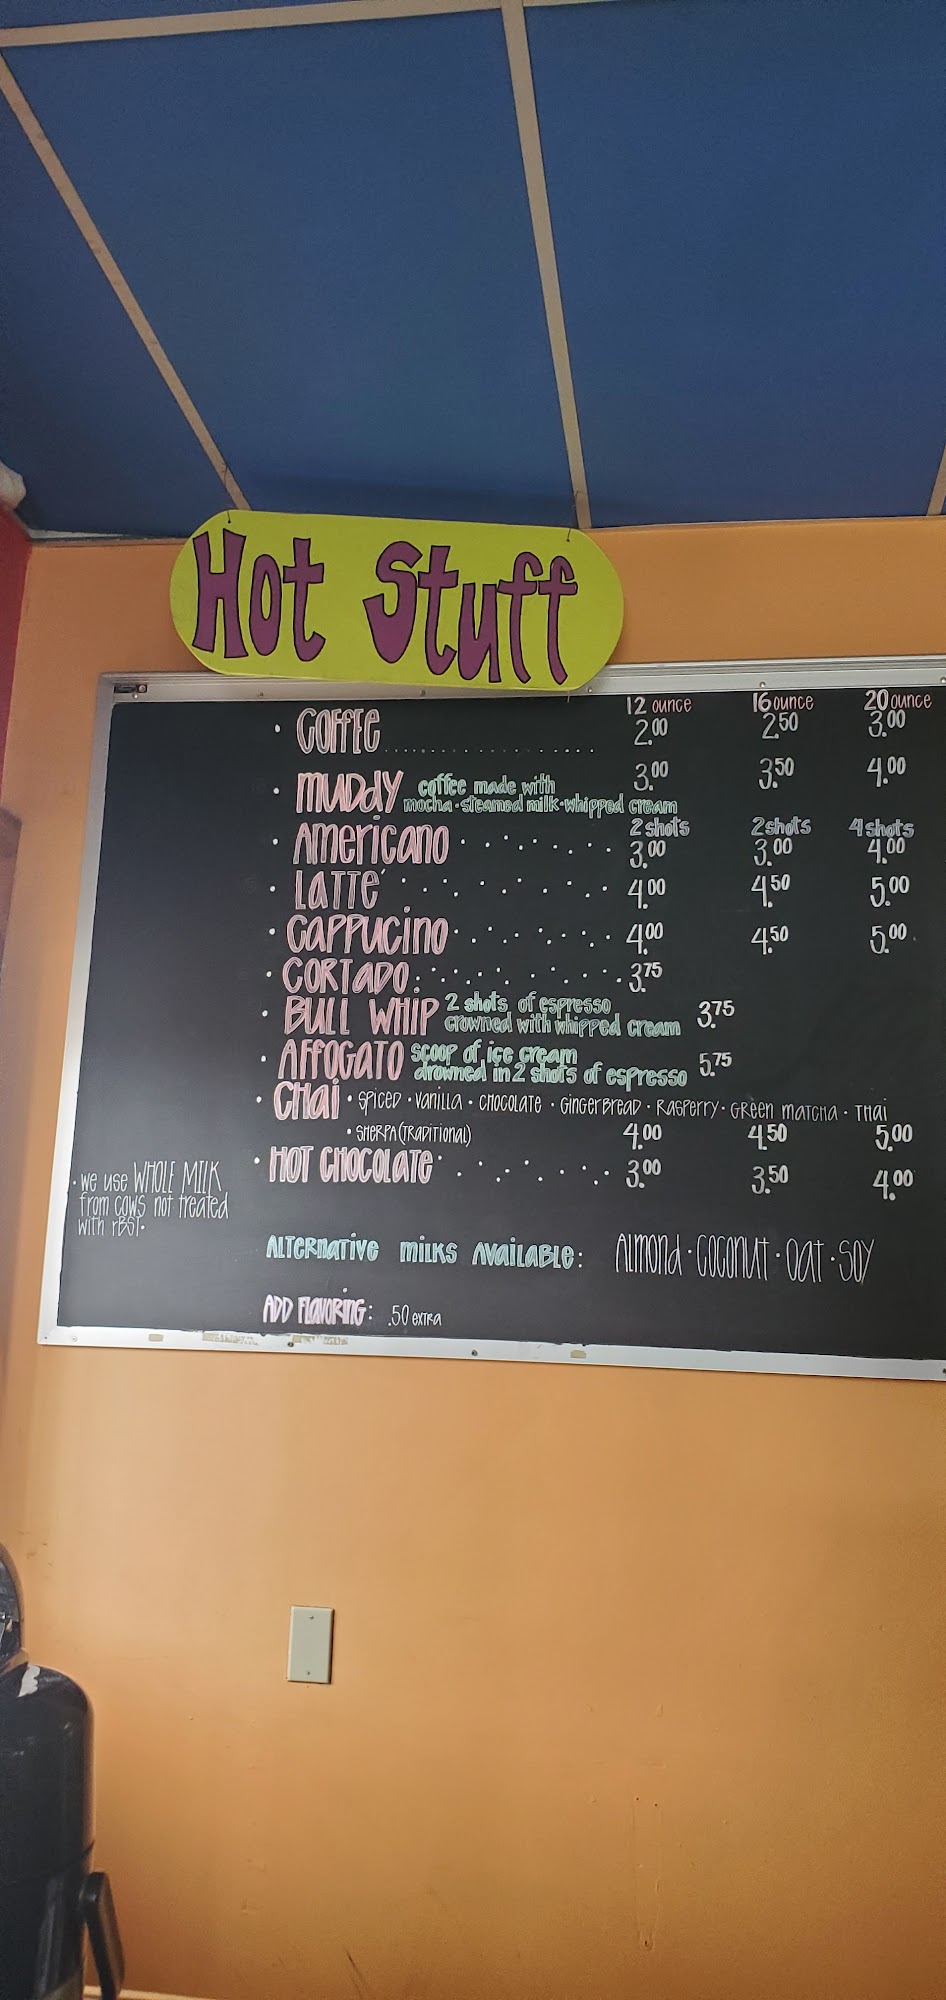 Hot Stuff
12 ounce 16 ounce 20 ounce
• COFFEE .................... 2.00 2.50 3.00
• MUDDY coffee made with 3.00 3.50 4.00
mocha • steamed milk • whipped cream
2 shots 2 shots 4 shots
• AMERICANO . . . . . . . . 3.00 3.00 4.00
• LATTE . . . . . . . . . 4.00 4.50 5.00
• CAPPUCINO . . . . . . . 4.00 4.50 5.00
• CORTADO . . . . . . . . . 3.75
• BULL WHIP 2 shots of espresso 3.75
crowned with whipped cream
• AFFOGATO scoop of ice cream 5.75
drowned in 2 shots of espresso
• CHAI • SPICED • VANILLA • CHOCOLATE • GINGERBREAD • RASPERRY • GREEN MATCHA • THAI
• SHERPA (TRADITIONAL) 4.00 4.50 5.00
• HOT CHOCOLATE . . . . . . . . 3.00 3.50 4.00
• we use WHOLE MILK
from cows not treated
with rBST.
ALTERNATIVE MILKS AVAILABLE: ALMOND • COCONUT • OAT • SOY
ADD FLAVORING: .50 EXTRA